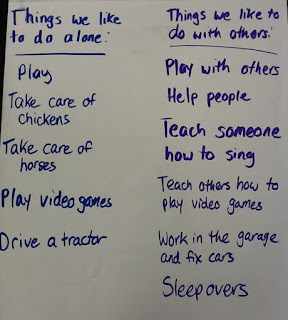 Things we like
to do alone:
Play
Take care of
chickens
Take care of
horses
Play video games
Drive a tractor
Things we like to
do with others:
Play with others
Help people
Teach someone
how to sing
Teach others how to
play video games
Work in the garage
and fix cars
Sleepovers